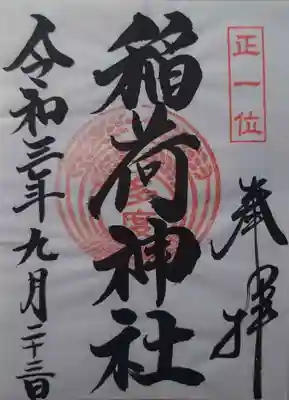 正一位
奉拝
稲荷神社
令和三年九月二十三日